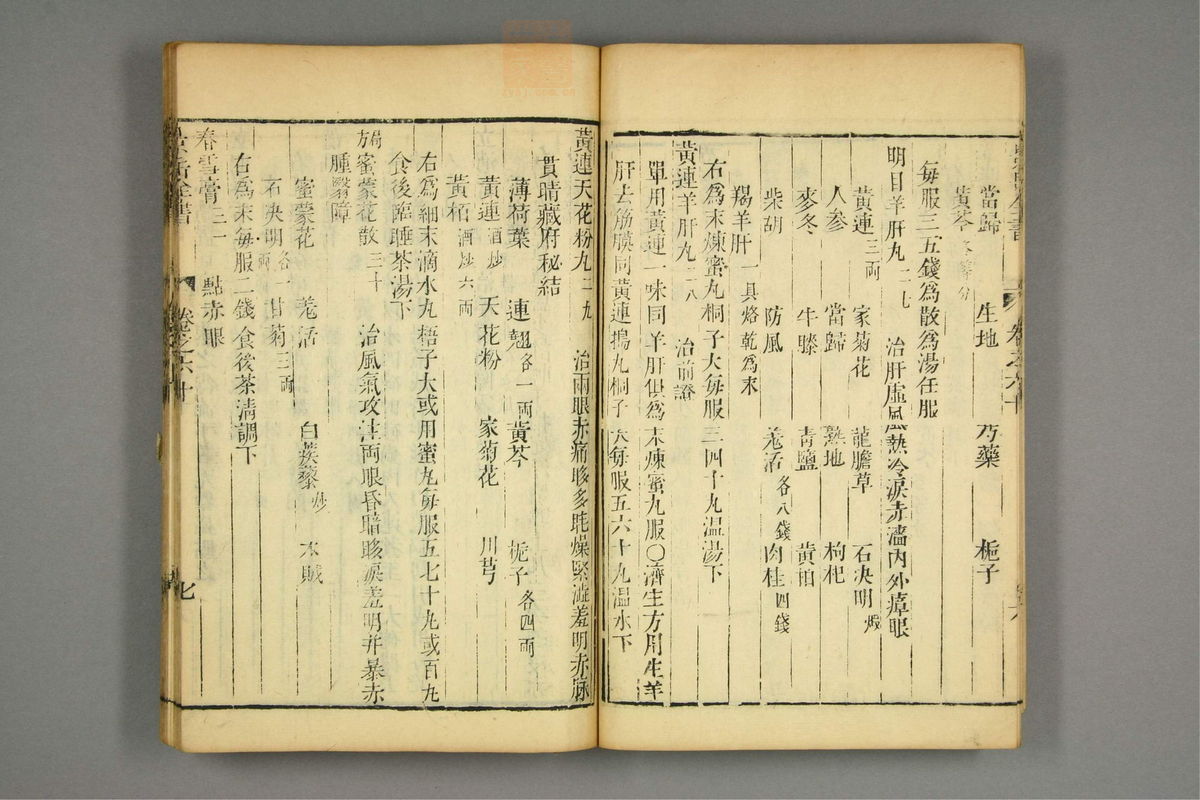 當歸 生地 芍藥 梔子
黃芩各等分
每服三五錢為散為湯任服
明目羊肝丸二七 治肝虛風熱冷淚赤澁內外瘴眼
黃連三兩 家菊花 龍膽草 石決明煅
人參 當歸 熟地 枸杞
麥冬 牛膝 青鹽 黃柏
柴胡 防風 羗活各八錢 肉桂四錢
羯羊肝一具烙乾為末
右為末煉蜜丸桐子大每服三四十丸溫湯下
黃連羊肝丸二八 治前證
單用黃連一味同羊肝俱為末煉蜜丸服〇濟生方用生羊
肝去筋膜同黃連搗丸桐子大每服五六十丸溫水下
黃連天花粉丸二九 治兩眼赤痛眵多眊燥緊澁羞明赤脉
貫睛藏府秘結
薄荷葉 連翹各一兩 黃芩 梔子各四兩
黃連酒炒 天花粉 家菊花 川芎
黃栢酒炒六兩
右為細末滴水丸梧子大或用蜜丸每服五七十丸或百丸
食後臨睡茶湯下
局方蜜蒙花散三十 治風氣攻注兩眼昏暗眵淚羞明并暴赤
腫翳障
蜜蒙花 羗活 白蒺藜炒 木賊
石決明各一兩 甘菊三兩
右為末每服二錢食後茶清調下
春雪膏三一 點赤眼
景岳全書 卷之六十 七